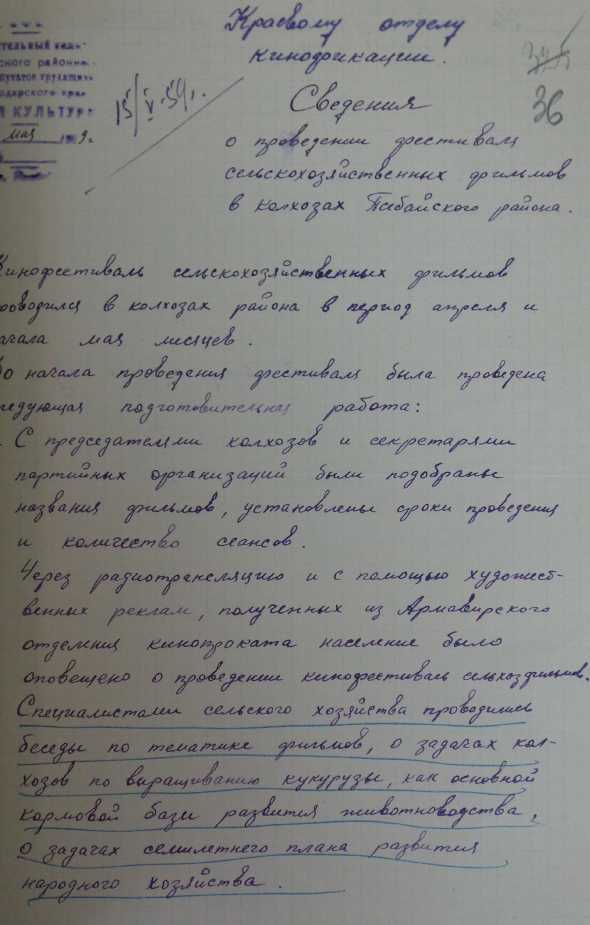 Краевому отделу
кинофикации.
тельный ком
ского района
путатов трудящих
одарского кра
КУЛЬТУР
мая 19 9г.
15/V-59г.
345
36
Сведения
о проведении фестиваля
сельскохозяйственных фильмов
в колхозах Псебайского района.
Кинофестиваль сельскохозяйственных фильмов
роводился в колхозах района в период апреля и
ачала мая месяцев.
До начала проведения фестиваля была проведена
ледующая подготовительная работа:
С председателями колхозов и секретарями
партийных организаций были подобраны
названия фильмов, установлены сроки проведения
и количество сеансов.
Через радиотрансляцию и с помощью художест-
венных реклам, полученных из Армавирского
отделения кинопроката население было
оповещено о проведении кинофестиваль сельхозфильмов.
Специалистами сельского хозяйства проводились
беседы по тематике фильмов, о задачах кол-
хозов по выращиванию кукурузы, как основной
кормовой базы развития животноводства,
о задачах семилетнего плана развития
народного хозяйства.